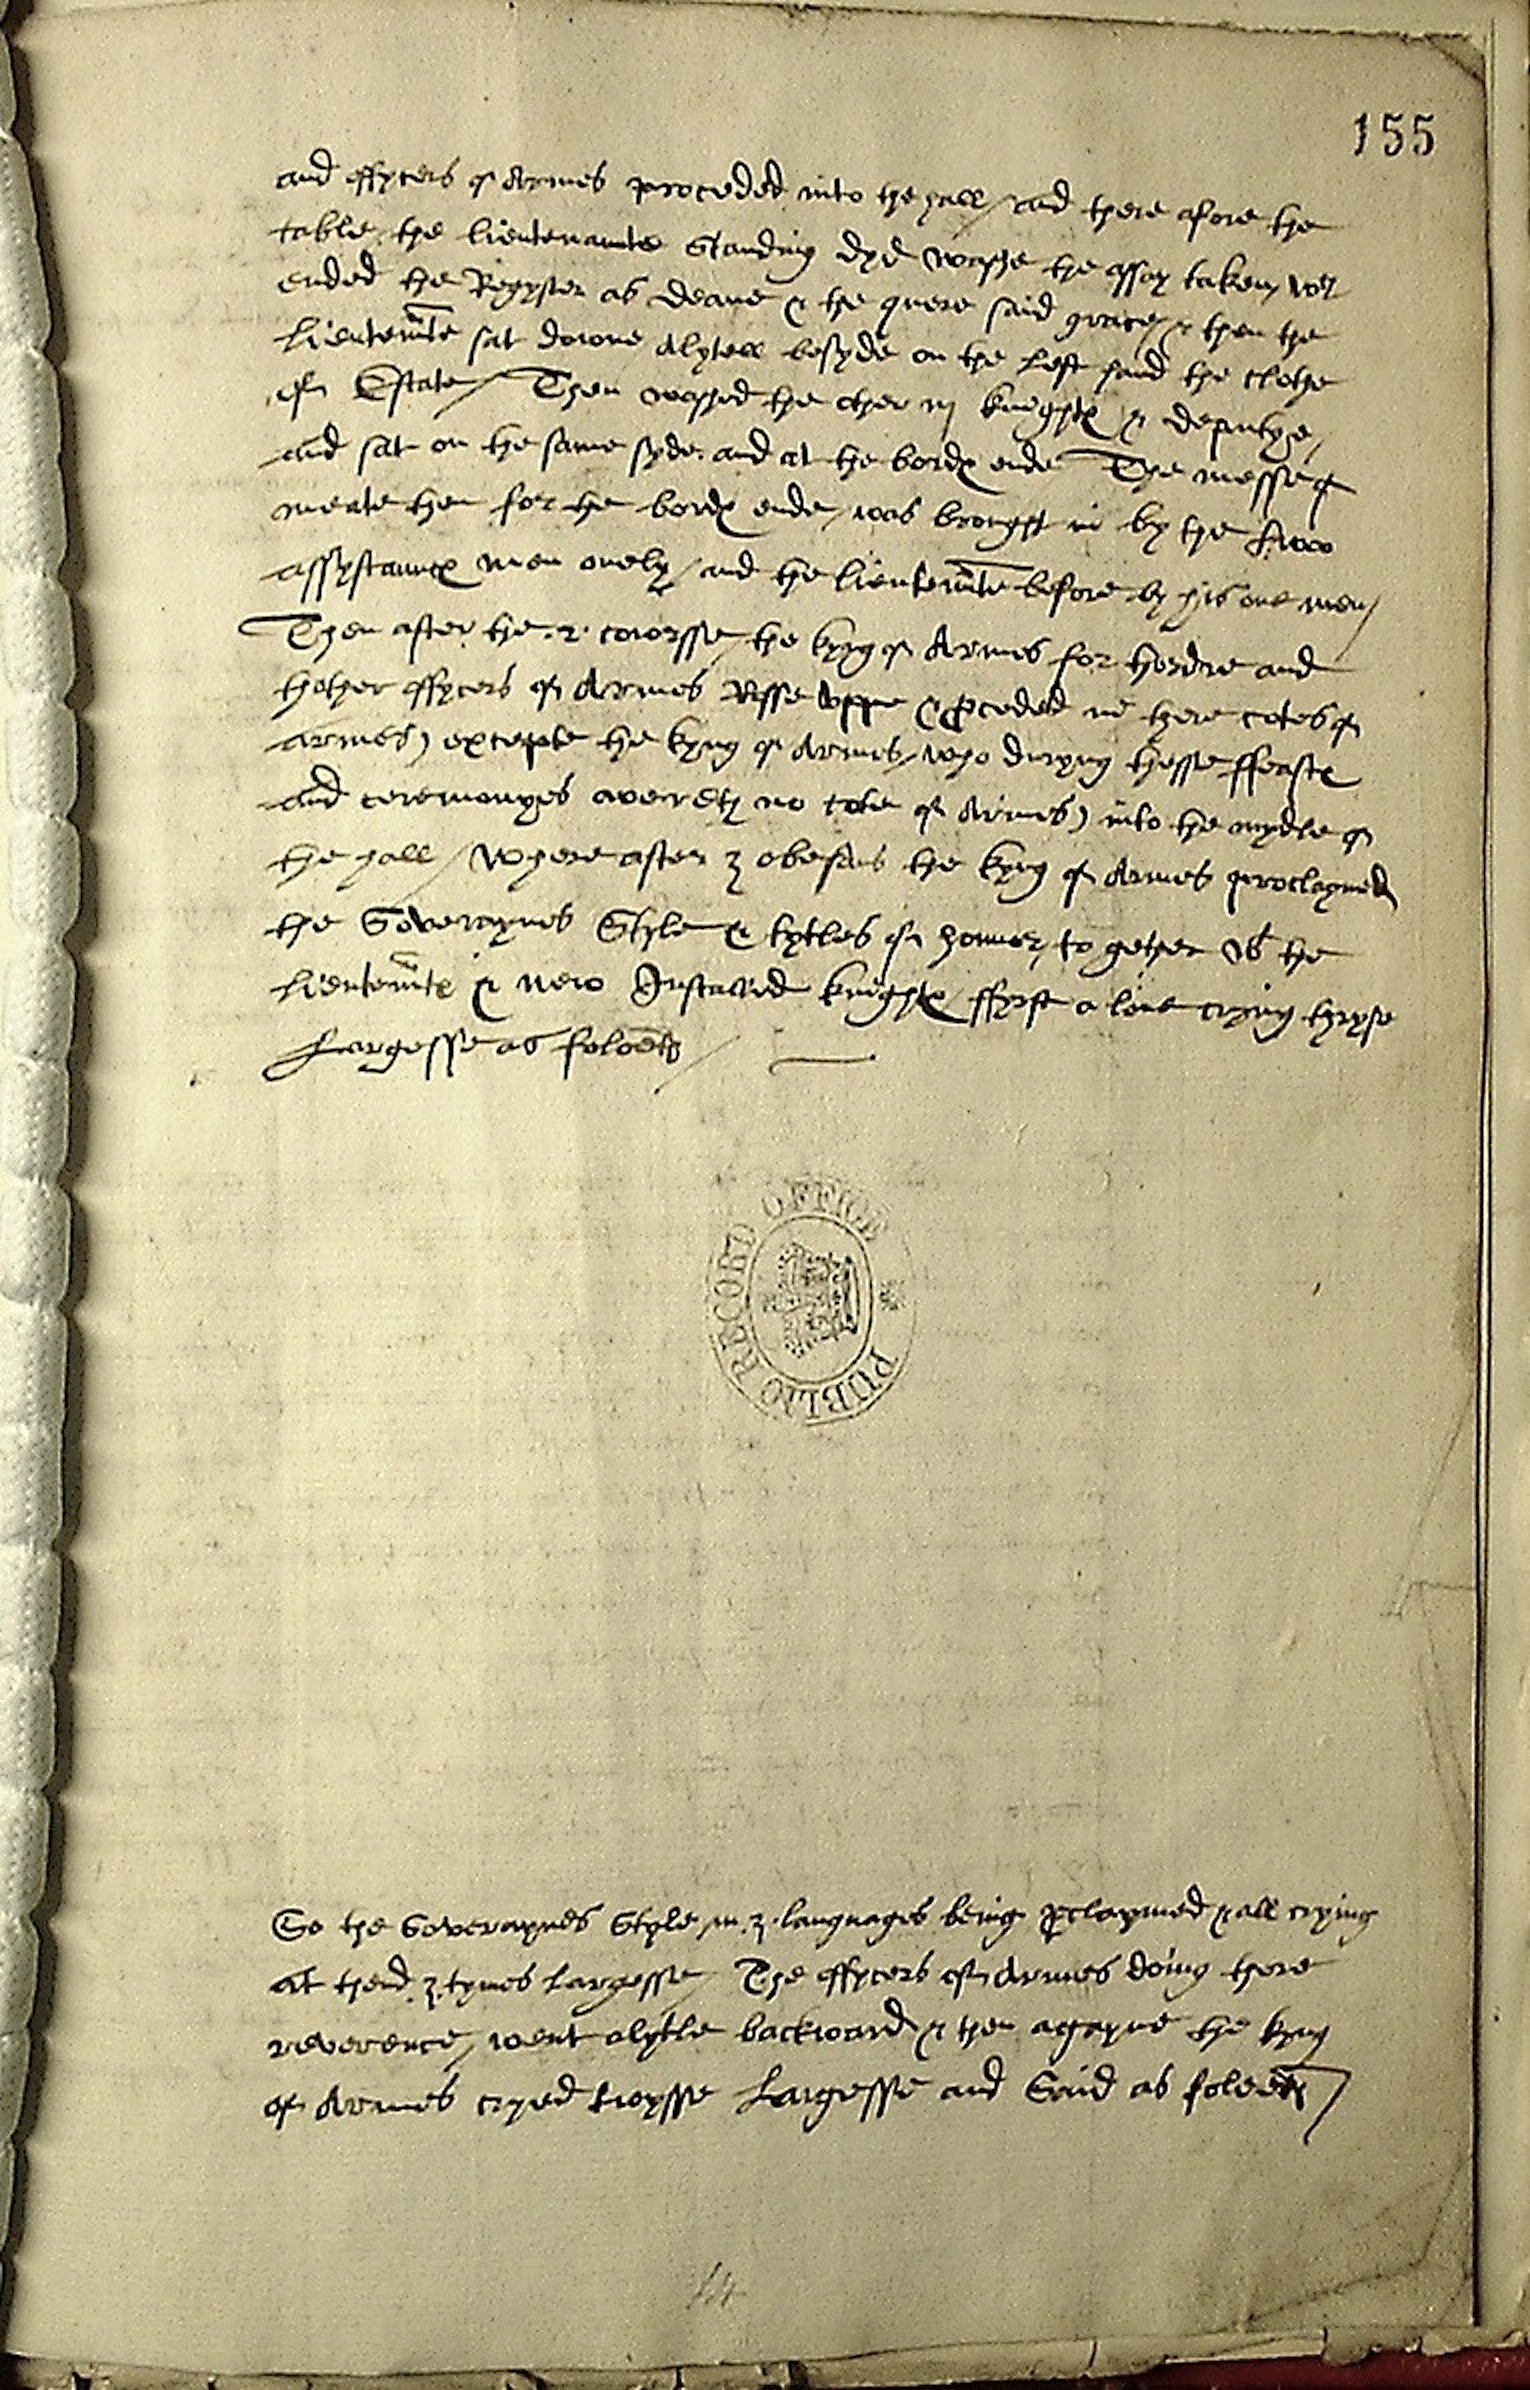 155
and offycers of Armes proceded into the hall / and there afore the
table, the lieutenante standing dyd washe the assay taken, wch
ended the Regyster as deane & the quere said grace, & then the
lieutennte sat downe alytell besyde on the left hand the clothe
of Estate / Then washed the other iij knightes & deputye,
and sat on the same syde and at the bordes ende The messe of
meate then for the bordes ende, was brought in by the two
assystauntes men onely / and the lieutennte before by his one men /
Then after the .2. cowrsse, the kyng of Armes for thordre and
thother offycers of Armes Risse uppe & proceded in there cotes of
armes) excepte the kyng of Armes, who duryng thesse ffeastes
and ceremonyes weareth no cote of Armes) into the mydle of
the hall / Where after 3 obesans the kyng of Armes proclaymed
the Soveraynes Style & tytles of honner, to gether wt the
lieutenntes & new Instawled knightes / ffyrst a lowe crying thryse
Largesse as foloeth /
PUBLIC RECORD OFFICE
So the Soveraynes Style in .3. languages being proclaymed & all crying
at thend .3. tymes largesse / The offycers of Armes doing there
reverence, went alytle backward & then agayne the kyng
of Armes cryed twysse Largesse and Said as foloeth /